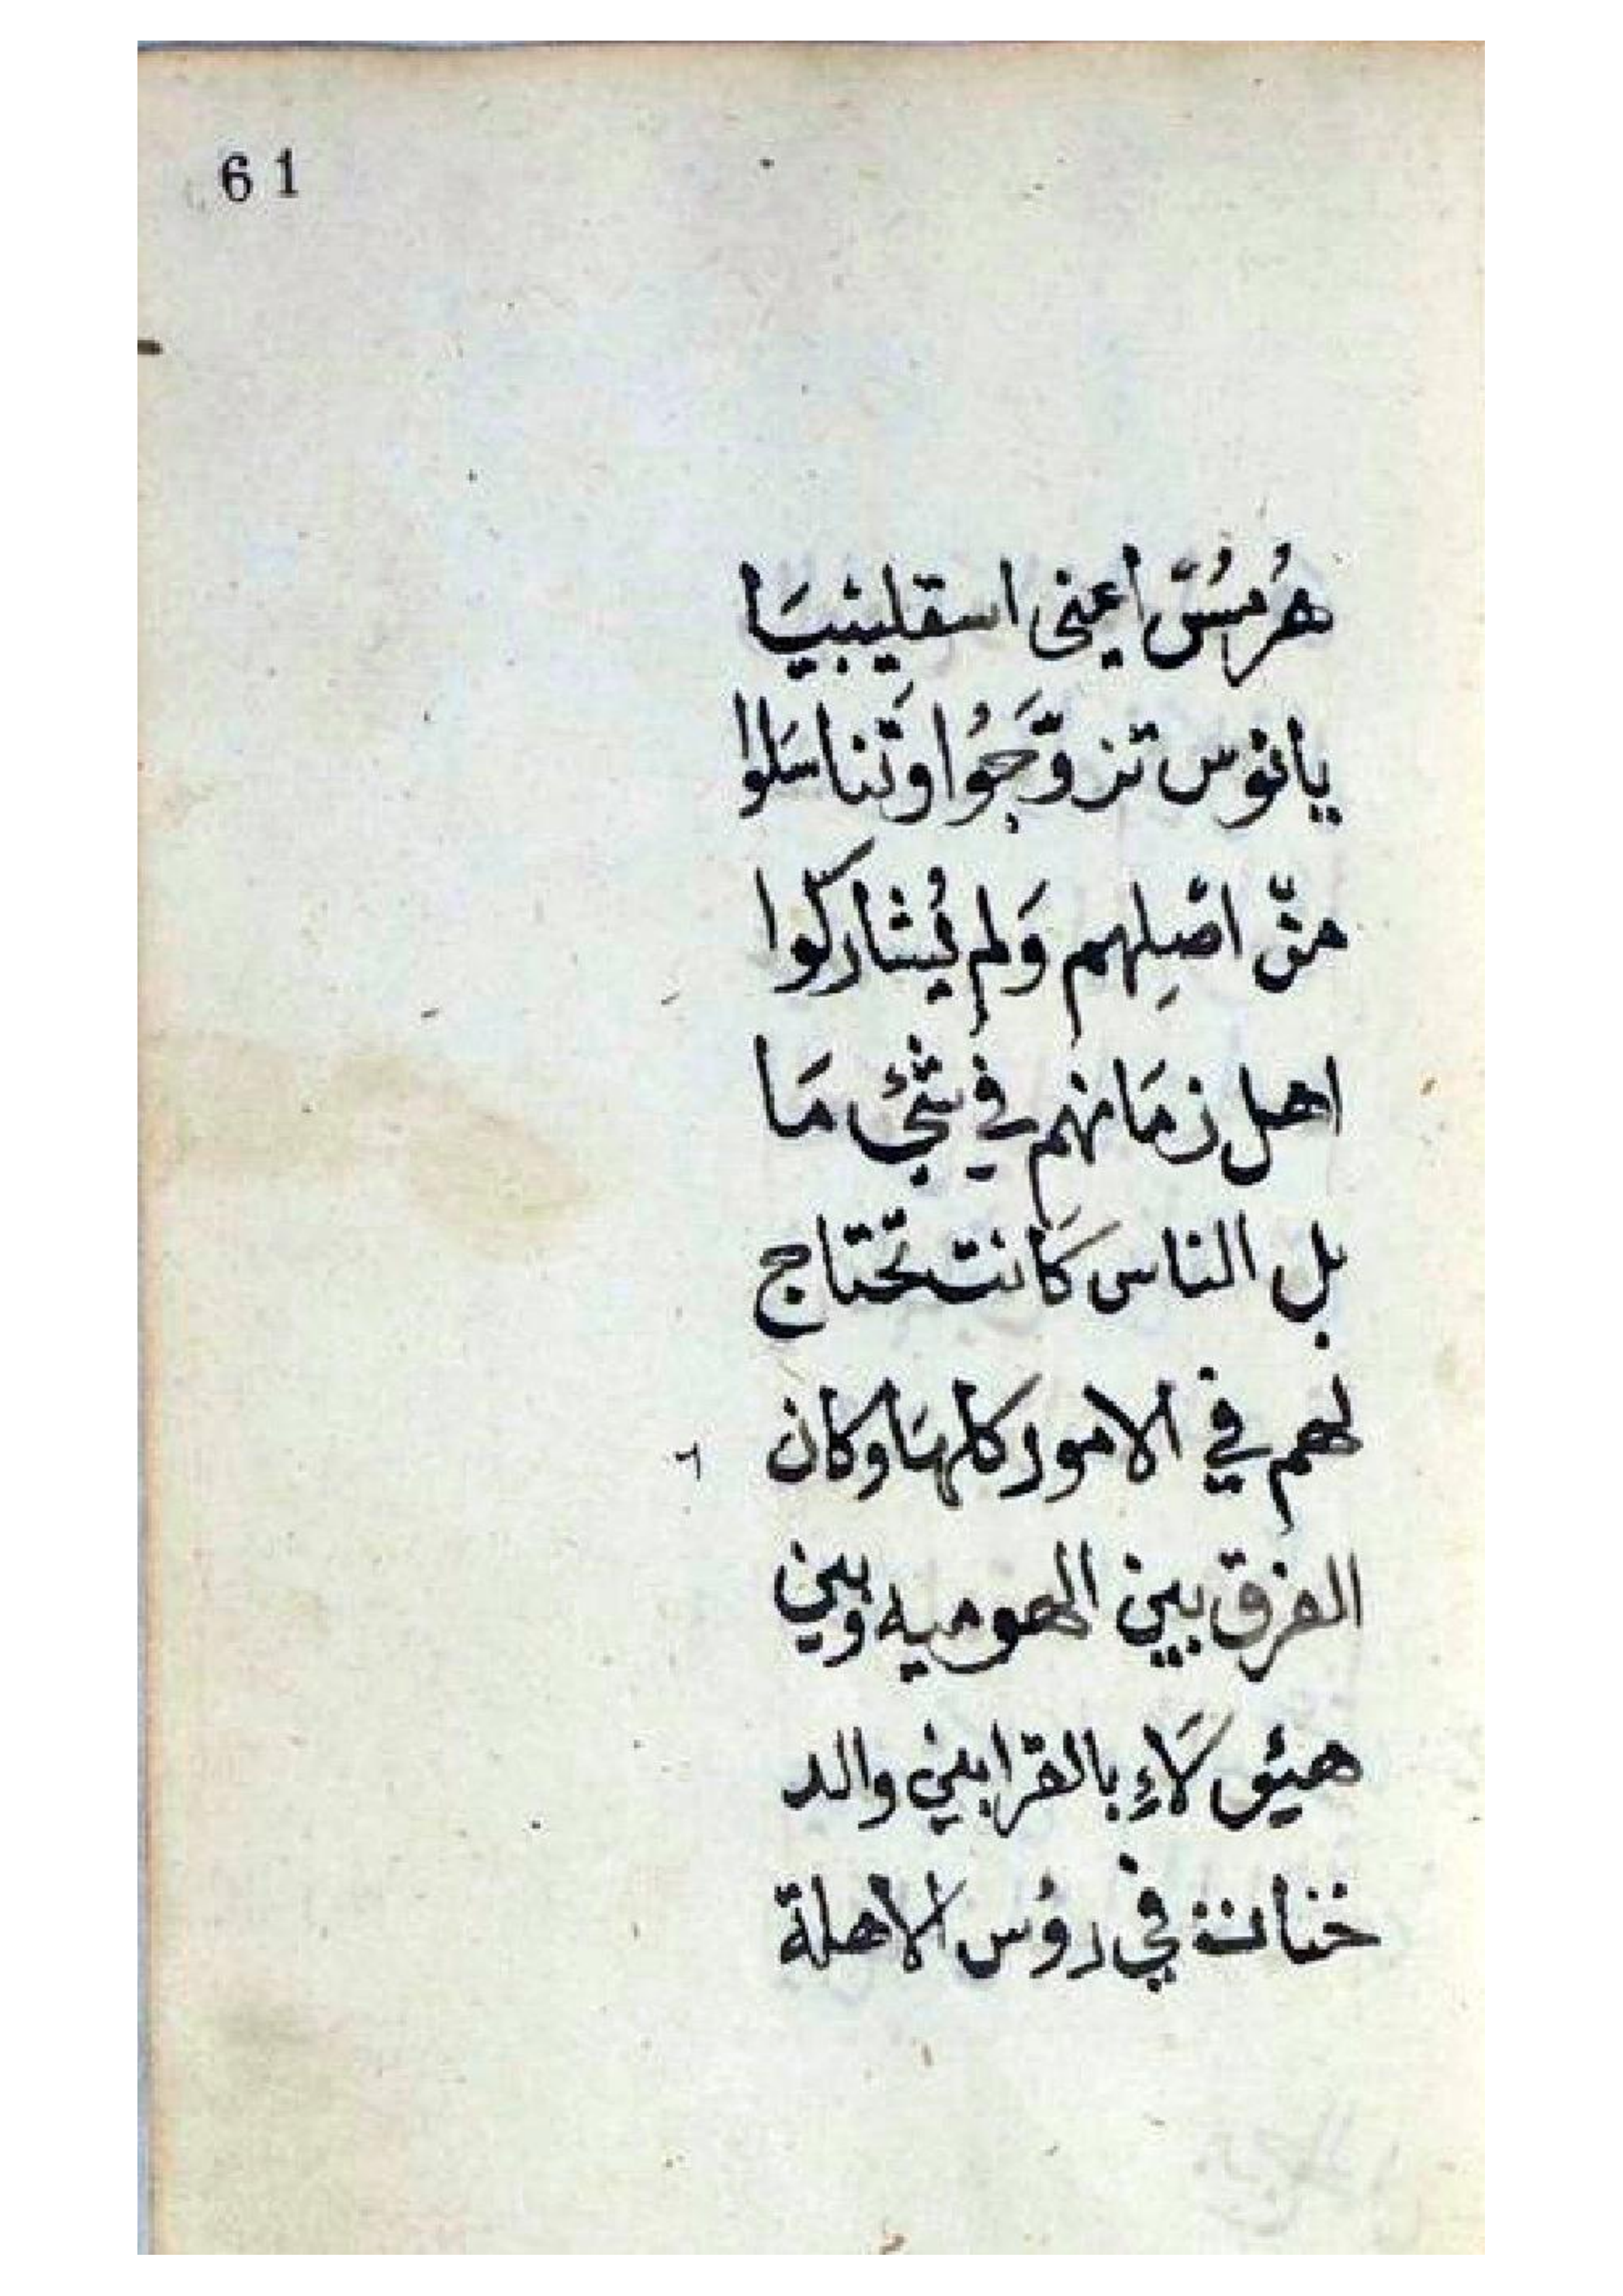 61
هُرمسُ اعنى اسقليبيَا
يانوس تزوّجَوُا وَتناسَلوا
منّ اصِلهم وَلم يُشاركوا
اهل زمَانهم في شئ مَا
بل الناس كَانت تحتاج
لهم في الامور كلهَا وكان
الفرق بين الهوميه وبين
هيؤلاءِ بالقرابين والد
خنانة في روُس الاهلة